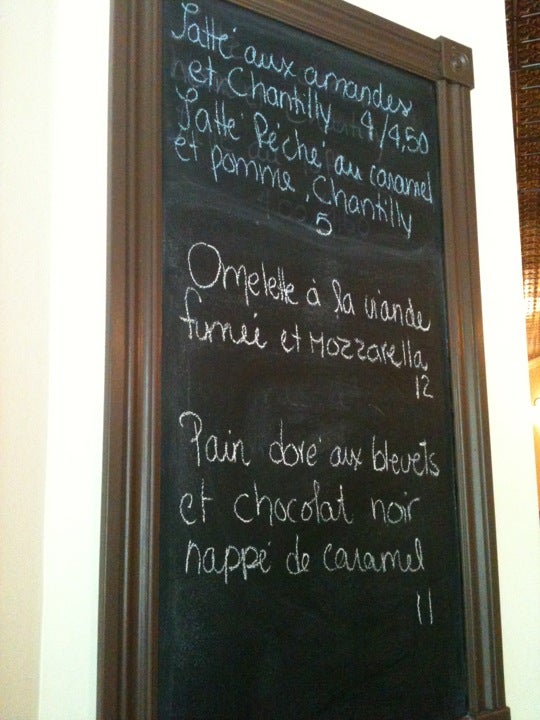 Latté aux amandes
et Chantilly 4/4,50
Latté Péché au caramel
et pomme, Chantilly
5
Omelette à la viande
fumée et Mozzarella
12
Pain doré aux bleuets
et chocolat noir
nappé de caramel
11